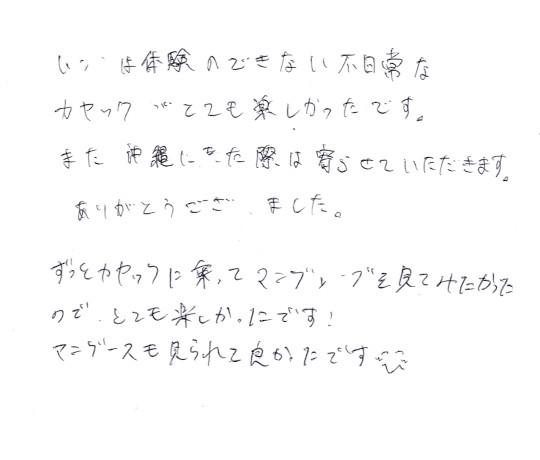 いつもは体験のできない不日常な
カヤックがとても楽しかったです。
また沖縄にきた際は寄らせていただきます。
ありがとうございました。
ずっとカヤックに乗ってマングローブを見てみたかった
ので、とても楽しかったです!
マングースも見られて良かったです